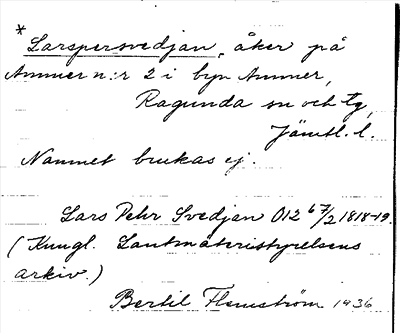 * Larspersvedjan, åker på
Ammer n:r 2 i byn Ammer,
Ragunda sn och tg,
Jämtl. l.
Namnet brukas ej.
Lars Pehr Svedjan 012 67/2 1818-19.
(Kungl. Lantmäteristyrelsens
arkiv.)
Bertil Flemström 1936